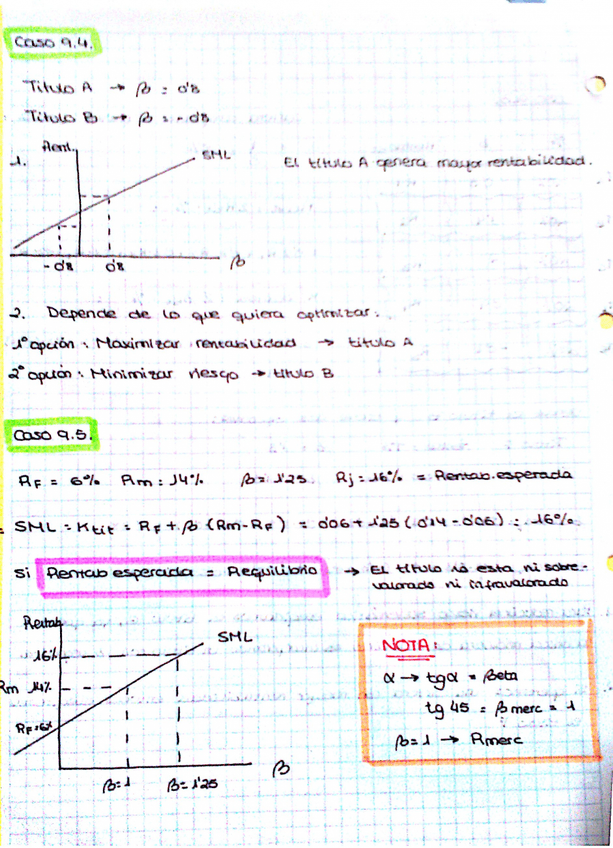 Caso 9.4.
Título A → β = 0'8
Título B → β = -0'8
1.
Rent.
SML
El título A genera mayor rentabilidad.
-0'8 0'8 β
2. Depende de lo que quiera optimizar:
1ª opción: Maximizar rentabilidad → título A
2ª opción: Minimizar riesgo → título B
Caso 9.5.
RF = 6% Rm = 14% β = 1'25 Rj = 16% = Rentab. esperada
SML = Ktit = RF + β (Rm - RF) = 0'06 + 1'25 (0'14 - 0'06) = 16%
Si Rentab esperada = Requilibrio → El título no esta ni sobre-
valorado ni infravalorado
Rentab
SML
16%
Rm 14%
RF=6%
β=1 β=1'25 β
NOTA:
α → tgα = Beta
tg 45 = β merc = 1
β=1 → Rmerc